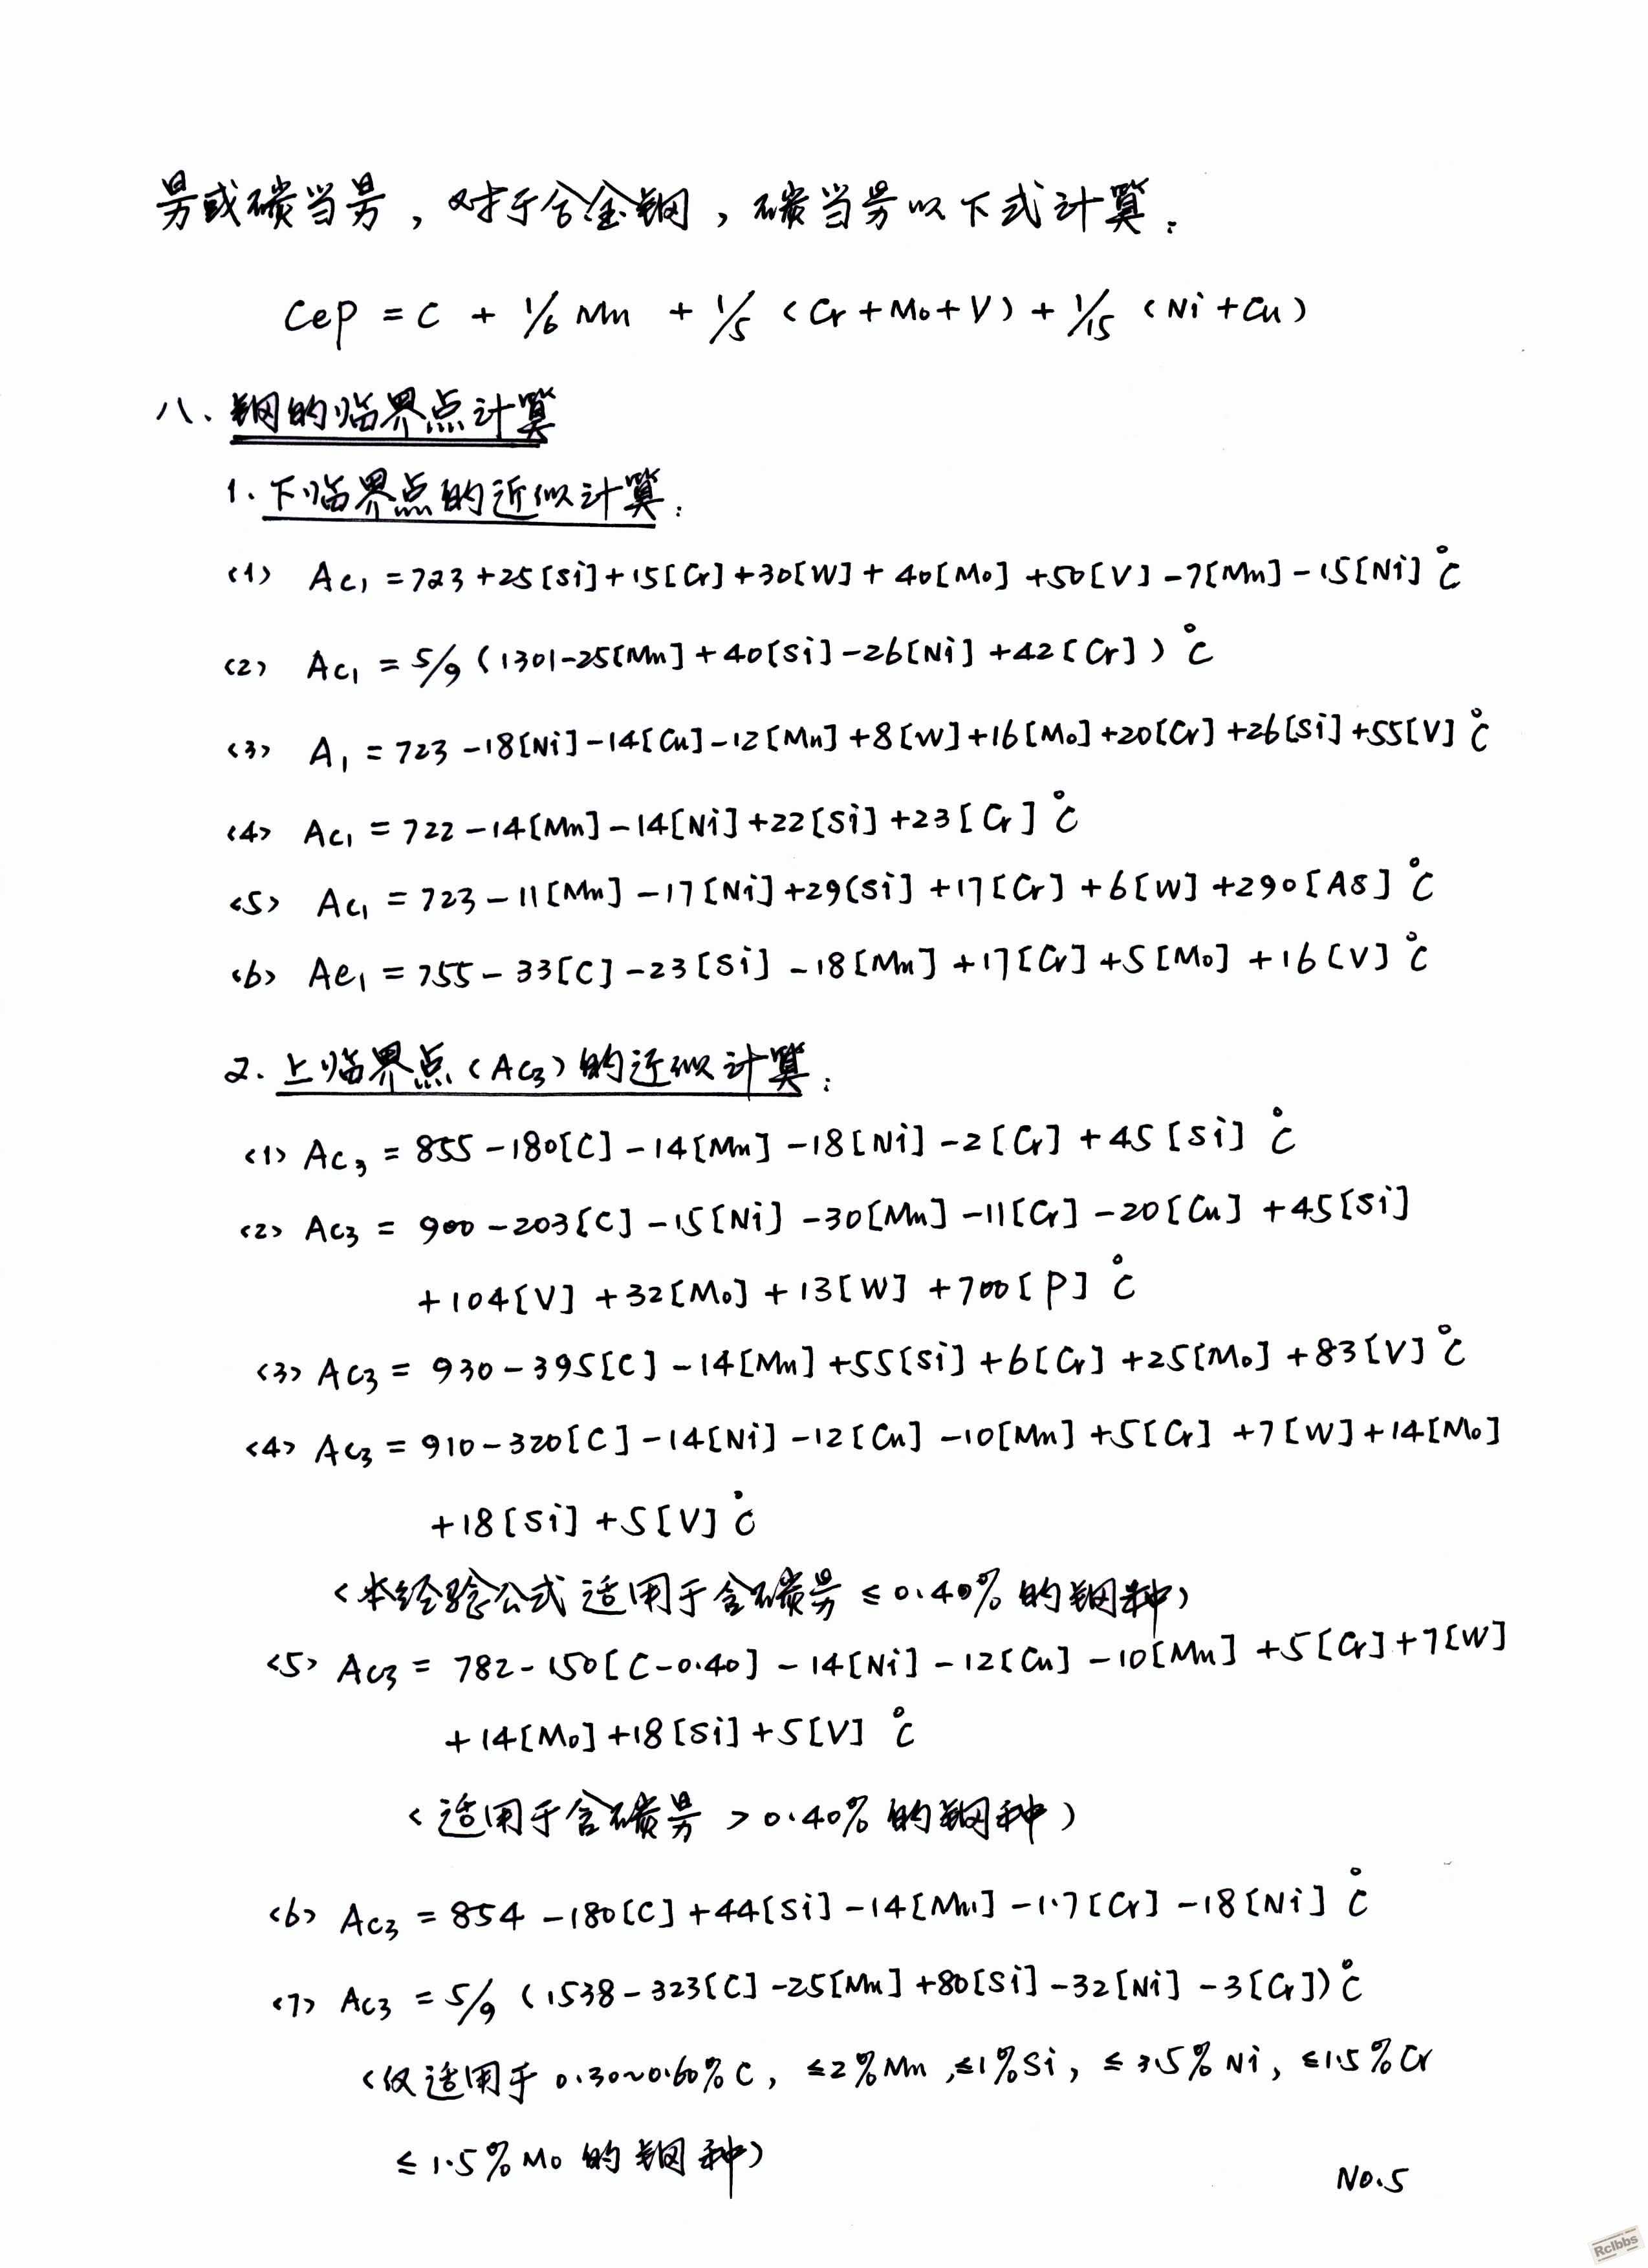 量或碳当量，对于合金钢，碳当量以下式计算：
Cep = C + 1/6 Mn + 1/5 (Cr+Mo+V) + 1/15 (Ni+Cu)
八、钢的临界点计算
1. 下临界点的近似计算：
<1> Ac₁ = 723+25[Si]+15[Cr]+30[W]+40[Mo]+50[V]-7[Mn]-15[Ni] ℃
<2> Ac₁ = 5/9 (1301-25[Mn]+40[Si]-26[Ni]+42[Cr]) ℃
<3> A₁ = 723-18[Ni]-14[Cu]-12[Mn]+8[W]+16[Mo]+20[Cr]+26[Si]+55[V] ℃
<4> Ac₁ = 722-14[Mn]-14[Ni]+22[Si]+23[Cr] ℃
<5> Ac₁ = 723-11[Mn]-17[Ni]+29[Si]+17[Cr]+6[W]+290[AS] ℃
<6> Ae₁ = 755-33[C]-23[Si]-18[Mn]+17[Cr]+5[Mo]+16[V] ℃
2. 上临界点(Ac₃)的近似计算：
<1> Ac₃ = 855-180[C]-14[Mn]-18[Ni]-2[Cr]+45[Si] ℃
<2> Ac₃ = 900-203[C]-15[Ni]-30[Mn]-11[Cr]-20[Cu]+45[Si]
+104[V]+32[Mo]+13[W]+700[P] ℃
<3> Ac₃ = 930-395[C]-14[Mn]+55[Si]+6[Cr]+25[Mo]+83[V] ℃
<4> Ac₃ = 910-320[C]-14[Ni]-12[Cu]-10[Mn]+5[Cr]+7[W]+14[Mo]
+18[Si]+5[V] ℃
<本经验公式适用于含碳量≤0.40%的钢种)
<5> Ac₃ = 782-150[C-0.40]-14[Ni]-12[Cu]-10[Mn]+5[Cr]+7[W]
+14[Mo]+18[Si]+5[V] ℃
<适用于含碳量>0.40%的钢种)
<6> Ac₃ = 854-180[C]+44[Si]-14[Mn]-1.7[Cr]-18[Ni] ℃
<7> Ac₃ = 5/9 (1538-323[C]-25[Mn]+80[Si]-32[Ni]-3[Cr]) ℃
<仅适用于0.30~0.60%C, ≤2%Mn, ≤1%Si, ≤3.5%Ni, ≤1.5%Cr
≤1.5%Mo的钢种)
No.5
Rclbbs